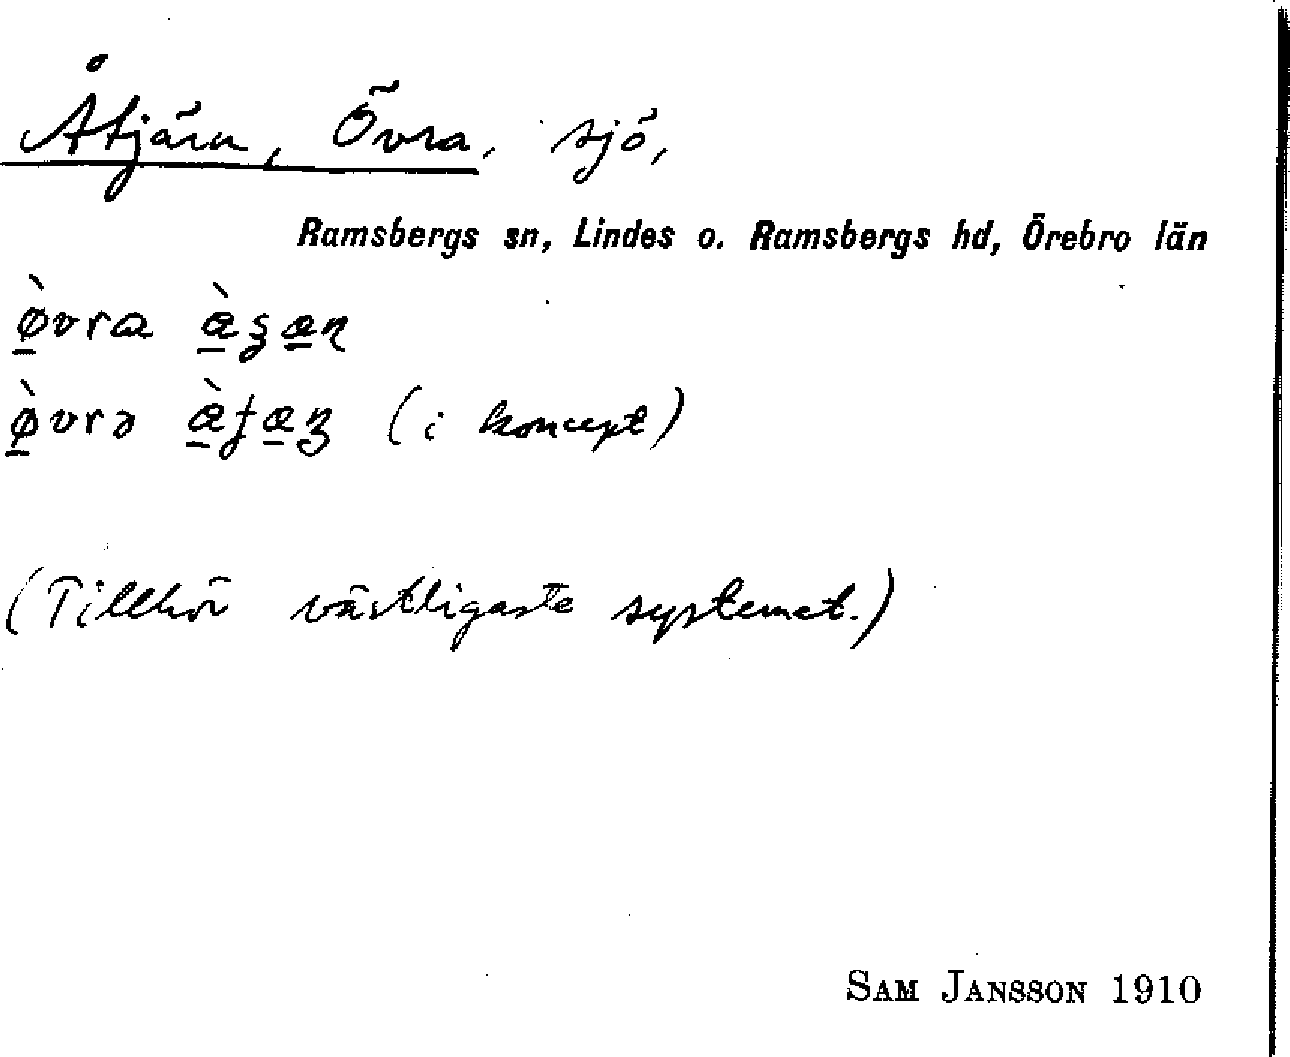 Åtjärn, Övra, sjö,
Ramsbergs sn, Lindes o. Ramsbergs hd, Örebro län
(i koncept)
(Tillhör västligaste systemet.)
SAM JANSSON 1910